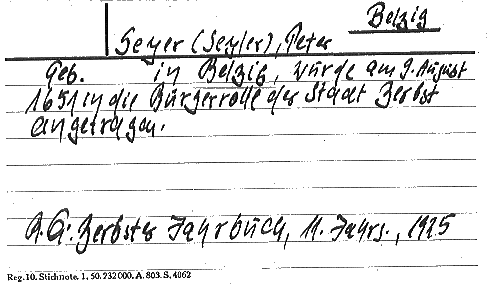 Belzig
Seyer (Seyler), Peter
Geb. in Belzig, wurde am 9. August
1651 in die Bürgerrolle der Stadt Zerbst
eingetragen.
Zerbster Jahrbuch, 11. Jahrg., 1925
Reg. 10. Stichnote. 1, 50. 232 000. A. 803. S. 4062